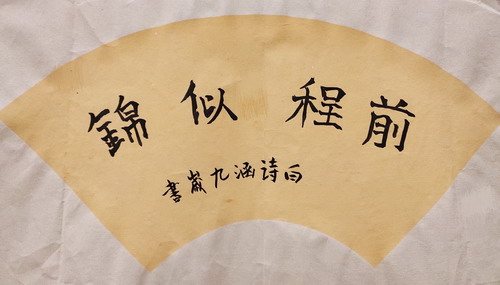 前程似錦
白诗涵九歲書